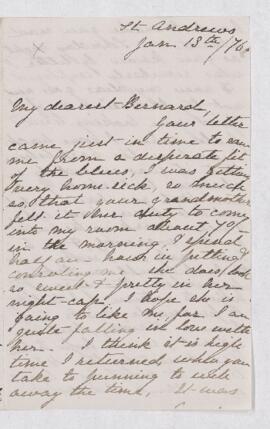 St. Andrews
Jan 13th/76
My dearest Bernard,
Your letter
came just in time to save
me from a desperate fit
of the blues, I was getting
very home-sick, so much
so, that your grandmother
felt it her duty to come
into my room about 7 o'c
in the morning & spend
half an hour in petting &
consoling me. She does look
so sweet & pretty in her
night-cap. I hope she is
going to like me, for I am
quite falling in love with
her. I think it is high
time I returned when you
take to punning to while
away the time, It was